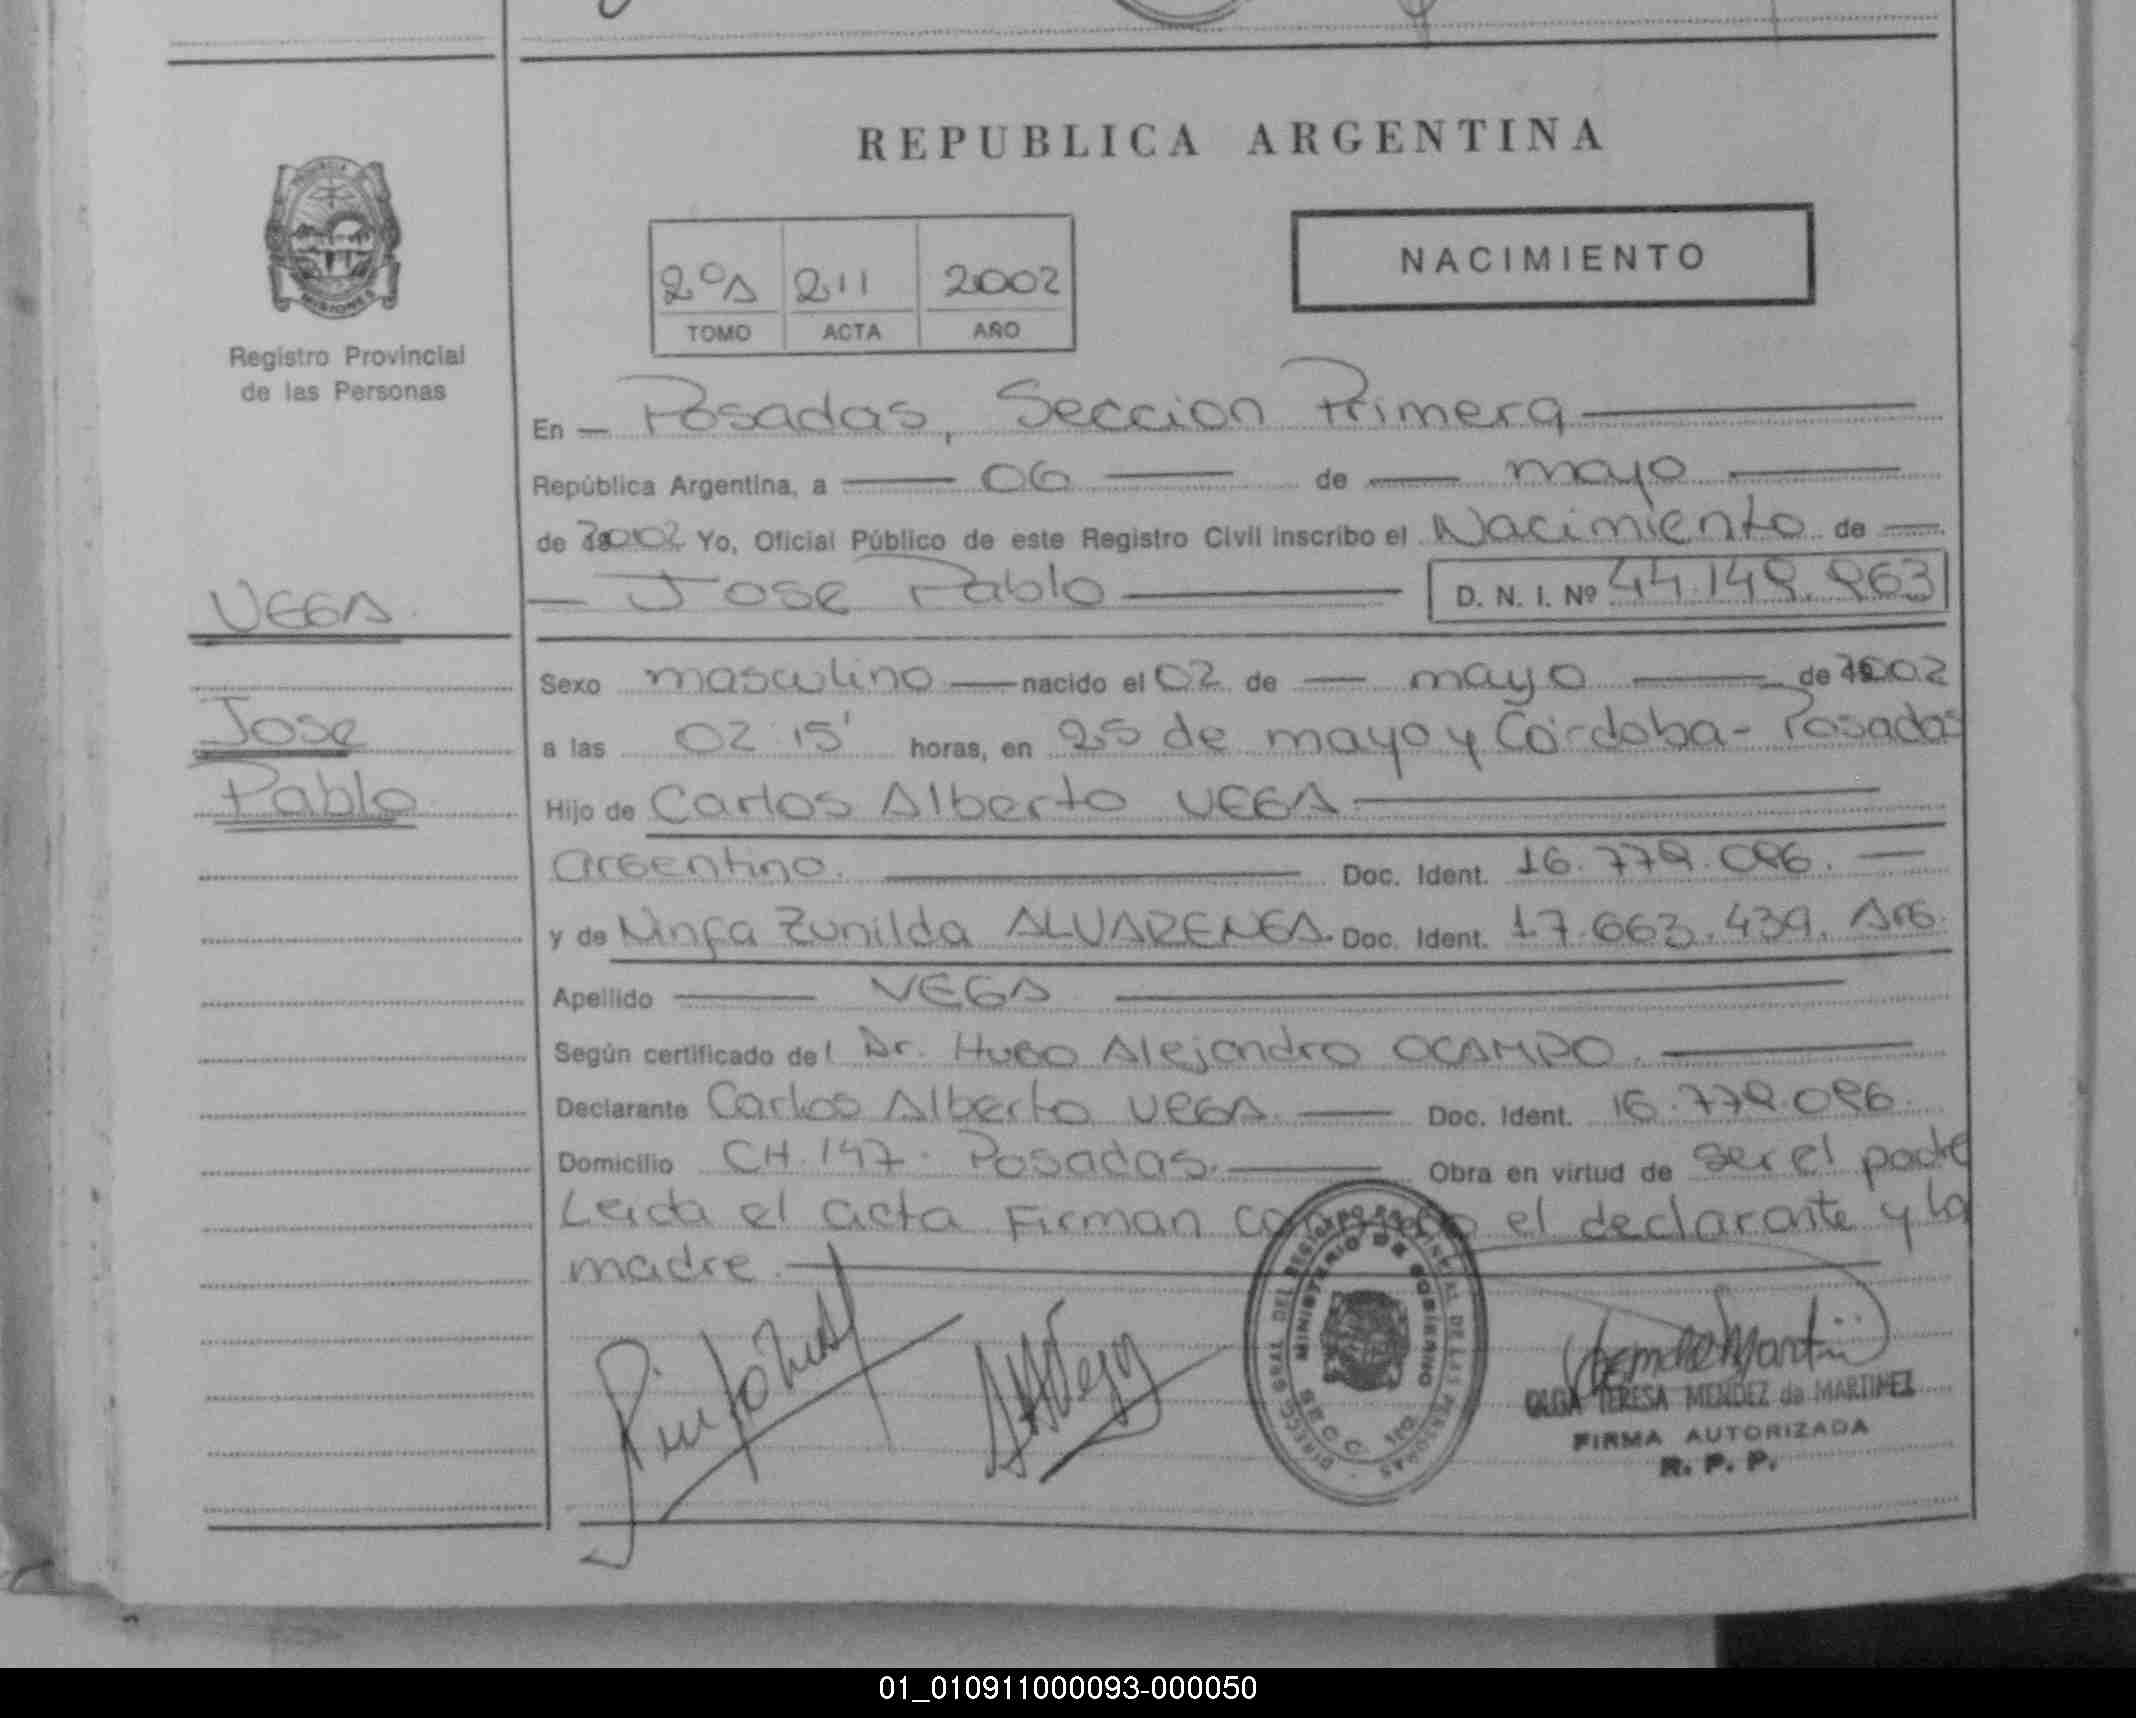 REPUBLICA ARGENTINA
NACIMIENTO
2º A 211 2002
TOMO ACTA AÑO
Registro Provincial
de las Personas
En Posadas, Seccion Primera
República Argentina, a 06 de mayo
de 2002 Yo, Oficial Público de este Registro Civil inscribo el Nacimiento de
Jose Pablo D. N. I. Nº
VEGA
Jose
Pablo
Sexo masculino nacido el 02 de mayo de 2002
a las 02:15' horas, en 25 de mayo y Córdoba - Posadas
Hijo de Carlos Alberto VEGA
Argentino. Doc. Ident.
y de Ninfa Zunilda ALVARENGA. Doc. Ident. 17.663.439. Arg.
Apellido VEGA
Según certificado del Dr. Hugo Alejandro OCAMPO.
Declarante Carlos Alberto VEGA Doc. Ident.
Domicilio CH. 147. Posadas. Obra en virtud de ser el padre
Leida el acta Firman conmigo el declarante y la
madre.
DIRECC. GRAL. DEL REGISTRO PROVINCIAL DE LAS PERSONAS
MINISTERIO DE GOBIERNO
SECC. 1RO.
OLGA TERESA MENDEZ de MARTINEZ
FIRMA AUTORIZADA
R. P. P.
01_010911000093-000050